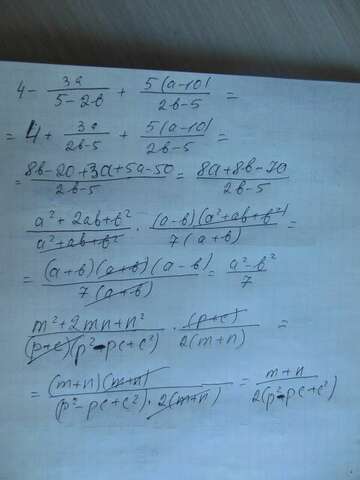 4 - 3a/(5-2в) + 5(a-10)/(2в-5) =
= 4 + 3a/(2в-5) + 5(a-10)/(2в-5) =
= (8в-20+3a+5a-50)/(2в-5) = (8a+8в-70)/(2в-5)
(a²+2aв+в²)/(a²+aв+в²) · (a-в)(a²+aв+в²)/(7(a+в)) =
= (a+в)(a+в)(a-в)/(7(a+в)) = (a²-в²)/7
(m²+2mn+n²)/((p+c)(p²-pc+c²)) · (p+c)/(2(m+n)) =
= (m+n)(m+n)/((p²-pc+c²)·2(m+n)) = (m+n)/(2(p²-pc+c²))